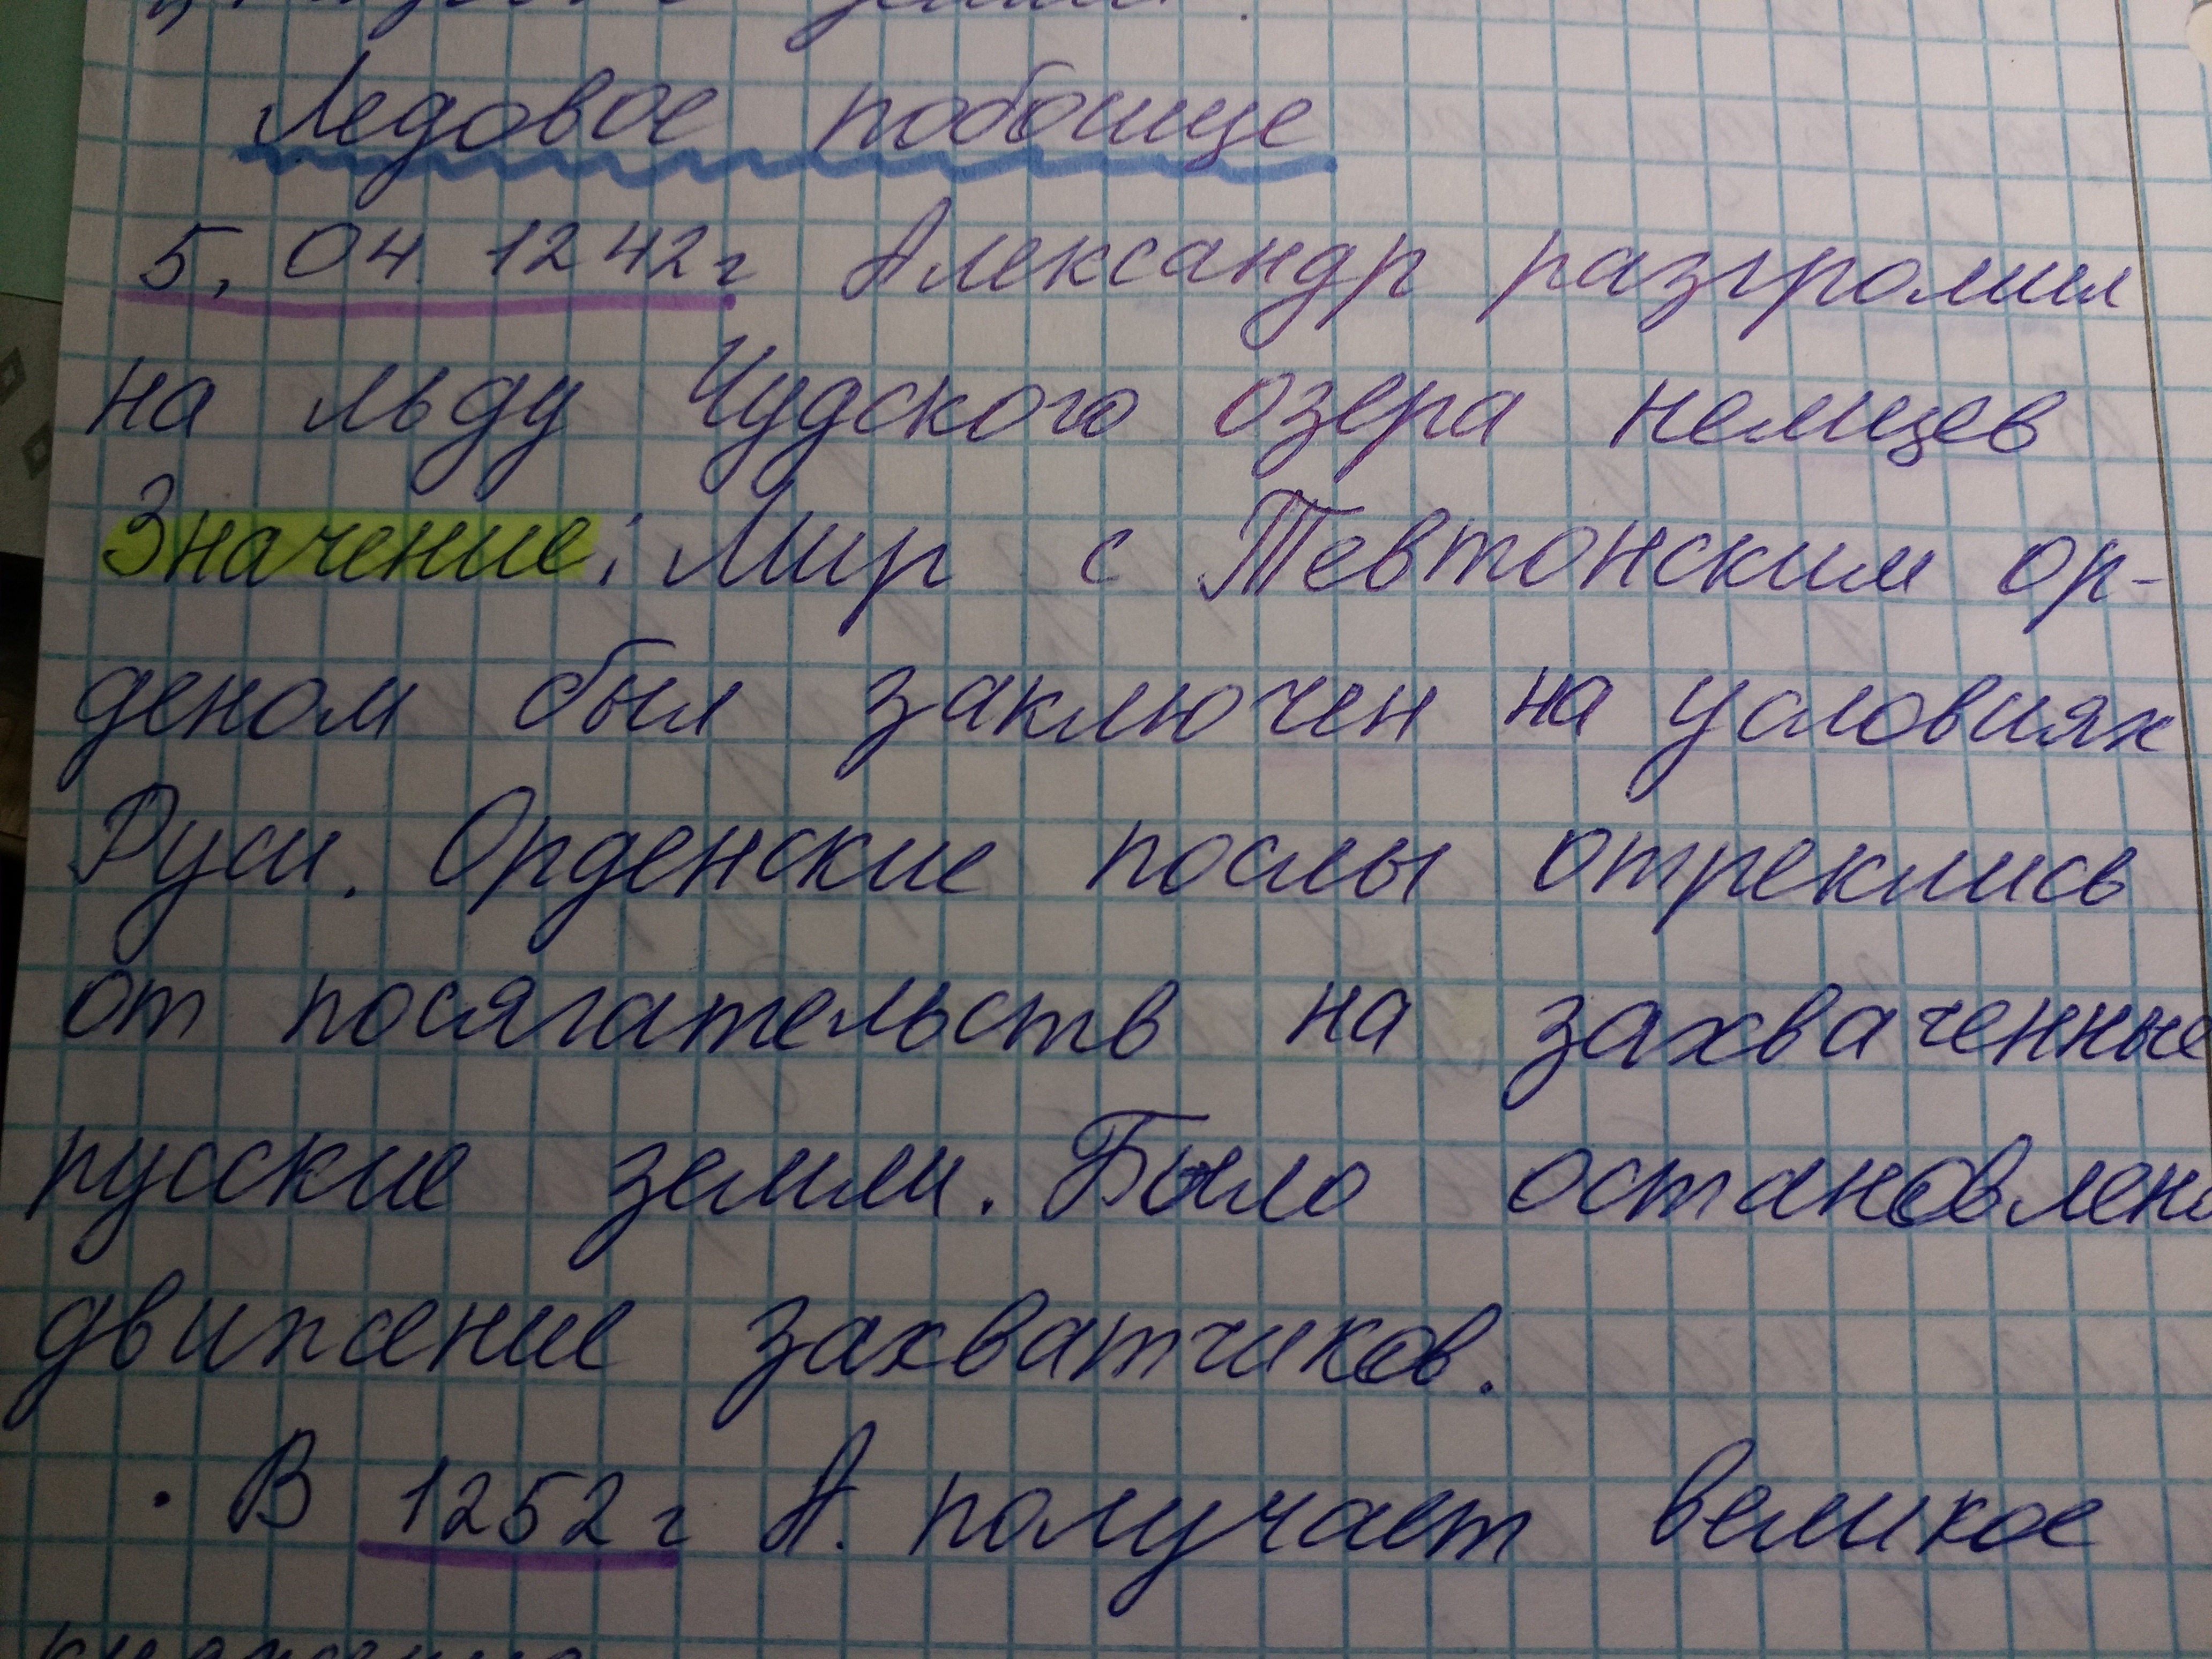 Ледовое побоище
5, 04. 1242г Александр разгромил
на льду Чудского озера немцев
Значение: Мир с Тевтонским ор-
деном был заключен на условиях
Руси. Орденские послы отреклись
от посягательств на захваченные
русские земли. Было остановлено
движение захватчиков.
• В 1252г А. получает великое